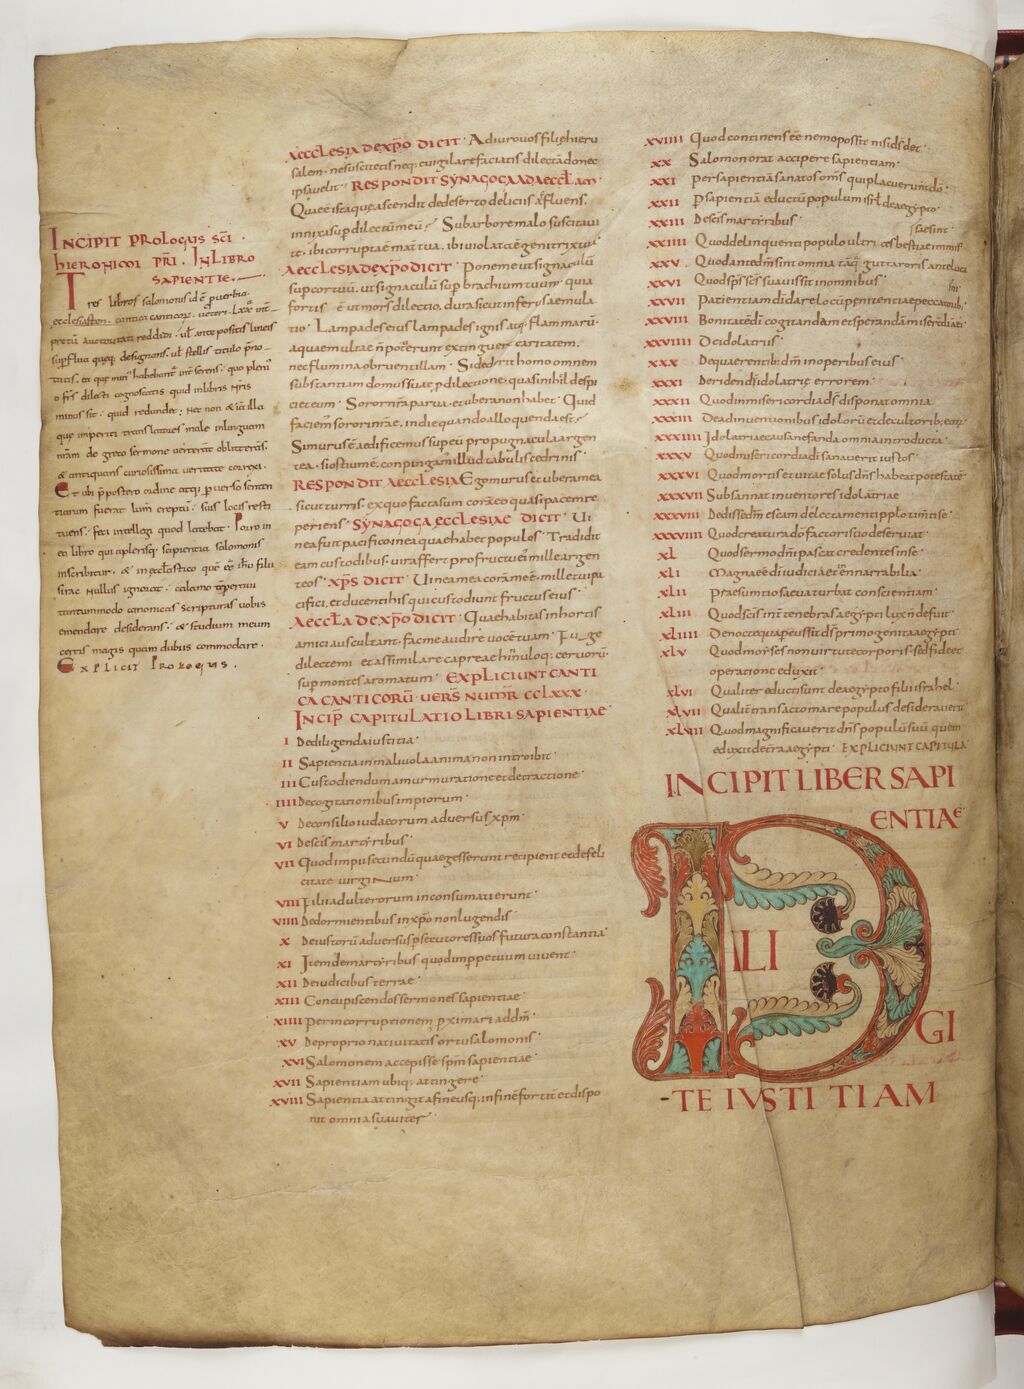 INCIPIT PROLOGUS SCI
HIERONIMI PRI. IN LIBRO
SAPIENTIE.
Tres libros salomonis id e puerbia.
ecclesiasten. cantica canticor. ueteri
pretu auctoritati reddidi. ut antepositis lineis
supflua quęq; designans. ut stellis titulo pro
tatis. ea que min habebant inseren. quo pleni
o frs dilecti cognoscatis quid in libris nris
minus sit. quid redundet; Nec non & illa
que imperiti translatores male in linguam
nram de greco sermone uerterant obliterans.
& antiquans curiosissima ueritate correxi.
Et ubi ppostero ordine atq; puerso senten
tiarum fuerat lum ereptu. suis locis resti
tuens. feci intellegi quod latebat. Porro in
eo libro qui a plerisq; sapientia salomonis
inscribitur. & in ecclastico que ee ihu filii
sirac nullus ignorat. calamo temperaui
tantummodo canonicas scripturas uobis
emendare desiderans. & studium meum
certis magis quam dubiis commodare.
EXPLICIT PROLOGUS.
AECCLESIA DE XPO DICIT. Adiuro uos filię hieru
salem. ne suscitetis neq; euigilare faciatis dilectā donec
ipsa uelit. RESPONDIT SYNAGOGA AD AECCLAM
Quae e ista quę ascendit de deserto deliciis affluens.
innixa sup dilectū meū? Sub arbore malo suscitaui
te. ibi corrupta e mat tua. ibi uiolata e genitrix tua
AECCLESIA DE XPO DICIT. Pone me ut signaculū
sup cor tuū. ut signaculū sup brachium tuum. quia
fortis ē ut mors dilectio. dura sicut infer aemula
tio. Lampades eius lampades ignis atq; flammarū.
aquae multae ñ poterunt extinguer caritatem.
nec flumina obruent illam. Si dederit homo omnem
substantiam domus suae p dilectione. quasi nihil despi
ciet eum. Soror nra parua. et ubera non habet. Quid
faciem sorori nrae. in die quando alloquenda est?
Si murus e aedificemus sup eū propugnacula argen
tea. si ostium ē. conpingam illud tabulis cedrinis.
RESPONDIT AECCLESIA Ego murus et ubera mea
sicut turris. ex quo facta sum cora eo quasi pace rep
periens. SYNAGOGA ECCLESIAE DICIT. Ui
nea fuit pacifico in ea quae habet populos. Tradidit
eam custodibus. uir affert pro fructu ei mille argen
teos. XPS DICIT. Uinea mea cora me ē. mille tui pa
cifici. et ducenti his qui custodiunt fructus eius.
AECCLA DE XPO DICIT. Quae habitas in hortis
amici auscultant. fac me audire uocē tuam. Fuge
dilecte mi. et assimilare capreae hinnuloq; ceruorū.
sup montes aromatum. EXPLICIUNT CANTI
CA CANTICORŪ. UERS NUMR CCLXXX.
INCIP CAPITULATIO LIBRI SAPIENTIAE.
I De diligenda iustitia.
II Sapientia in maliuola anima non introibit.
III Custodiendum a murmuratione et detractione.
IIII De cogitationibus impiorum.
V De consilio iudaeorum aduersus xpm.
VI De scis martyribus.
VII Quod impii secundū quae gesserunt recipient et de feli
citate uirginum.
VIII Filii adulterorum inconsummati erunt.
VIIII De dormientibus in xpo non lugendis.
X De iustorū aduersus psecutores suos futura constantia.
XI Item de martyribus quod in ppetuum uiuent.
XII De iudicibus terrae.
XIII Concupiscendos sermones sapientiae.
XIIII Per incorruptionem pximari ad dm.
XV De proprio natiuitatis ortu salomonis.
XVI Salomonem accepisse spm sapientiae.
XVII Sapientiam ubiq; attingere.
XVIII Sapientia attingit a fine usq; in fine fortit et dispo
nit omnia suauiter.
XVIIII Quod continens ee nemo possit nisi ds det.
XX Salomon orat accipere sapientiam.
XXI Per sapientiā sanatos oms qui placuerunt do.
XXII P sapientiā eductū populum isrl de aegypto.
XXIII De scis martyribus. saeuient.
XXIIII Quod delinquenti populo ultrices bestiae inmis
XXV Quod ante dm sint omnia taq; gutta roris antelucani
XXVI Quod sps sci suauis sit in omnibus.
XXVII Patientiam di dare locū penitentiae peccatorib;
XXVIII Bonitatē di cogitandam et sperandā misericdiā ei.
XXVIIII De idolatris.
XXX De quaerentib; dm in operibus eius.
XXXI Deridend idolatrię errorem.
XXXII Quod in misericordia ds disponat omnia.
XXXIII De adinuentionibus idolorū et de cultorib; eor.
XXXIIII Idolatriae causa nefanda omnia introducta.
XXXV Quod misericordia di sanauerit iustos.
XXXVI Quod mortis et uitae solus ds habeat potestatē.
XXXVII Subsannat inuentores idolatriae
XXXVIII Dedisse dm escam delectamenti pplo timti se.
XXXVIIII Quod creatura do factori suo deseruiat.
XL Quod sermo dni pascat credentes in se.
XLI Magna eē di iudicia et inenarrabilia.
XLII Praesumtio saeua turbat conscientiam.
XLIII Quod scis int tenebras aegypti lux ñ defuit.
XLIIII De nocte qua pcussit ds primogenita aegypti.
XLV Quod moyses non uirtute corporis. sed fidei et
operatione eduxit.
XLVI Qualiter educti sunt de aegypto filii israhel.
XLVII Qualit transacto mare populus desiderauerit
XLVIII Quod magnificauerit dns populū suū quem
eduxit de tra aegypti. EXPLICIUNT CAPITULA
INCIPIT LIBER SAPI
ENTIAE
DILI
GI
TE IUSTITIAM